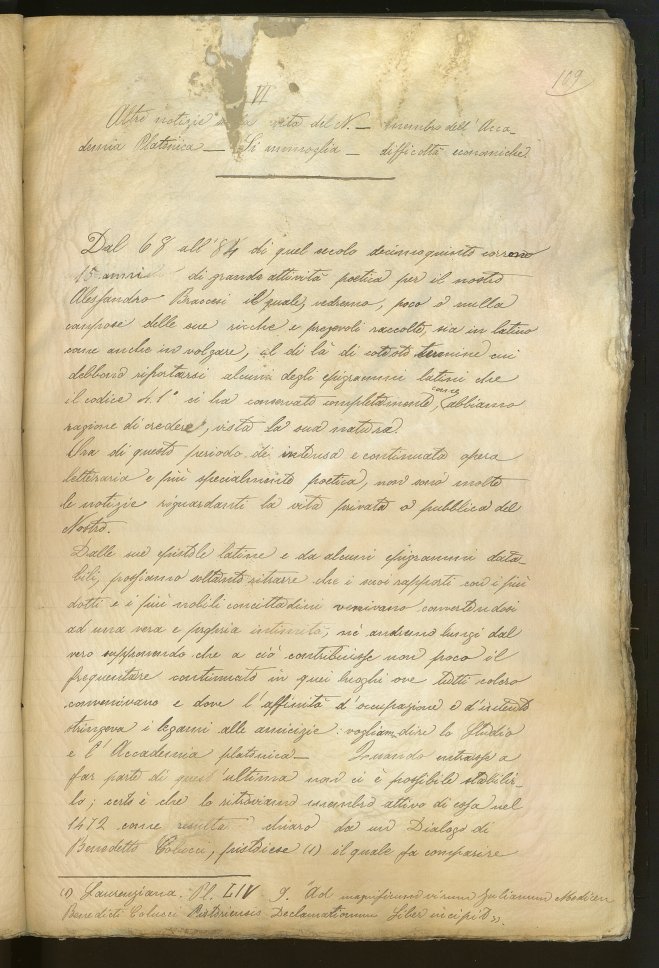 109
VI
Altre notizie vita del N. — membro dell'Acca-
demia Platonica — Si ammoglia — difficoltà economiche.
Dal 68 all'84 di quel secolo decimoquinto corrono
15 anni di grande attività poetica per il nostro
Alessandro Braccesi il quale, vedremo, poco o nulla
compose delle sue ricche e pregevoli raccolte, sia in latino
come anche in volgare, al di là di codesto termine cui
debbono riportarsi alcuni degli epigrammi latini che
il codice 41° ci ha conservato completamente, come abbiamo
ragione di credere, vista la sua natura.
Ora di questo periodo di intensa e continuata opera
letteraria e più specialmente poetica, non sono molte
le notizie riguardanti la vita privata o pubblica del
Nostro.
Dalle sue epistole latine e da alcuni epigrammi data-
bili, possiamo soltanto ritrarre che i suoi rapporti con i più
dotti e i più nobili concittadini venivano convertendosi
ad una vera e propria intimità, né andremo lungi dal
vero supponendo che a ciò contribuisse non poco il
frequentare continuato in quei luoghi ove tutti coloro
convenivano e dove l'affinità d'occupazione o d'intento
stringeva i legami alle amicizie: vogliam dire lo Studio
e l'Accademia platonica — Quando entrasse a
far parte di quest'ultima non ci è possibile stabilir-
lo; certo è che lo ritroviamo membro attivo di essa nel
1472 come resulta chiaro da un Dialogo di
Benedetto Colucci, pistoiese (1) il quale fa comparire
(1) Laurenziana. Pl. LIV 9. "Ad magnificum virum Julianum Medicen
Benedicti Colucci Pistoriensis Declamationum Liber incipit".